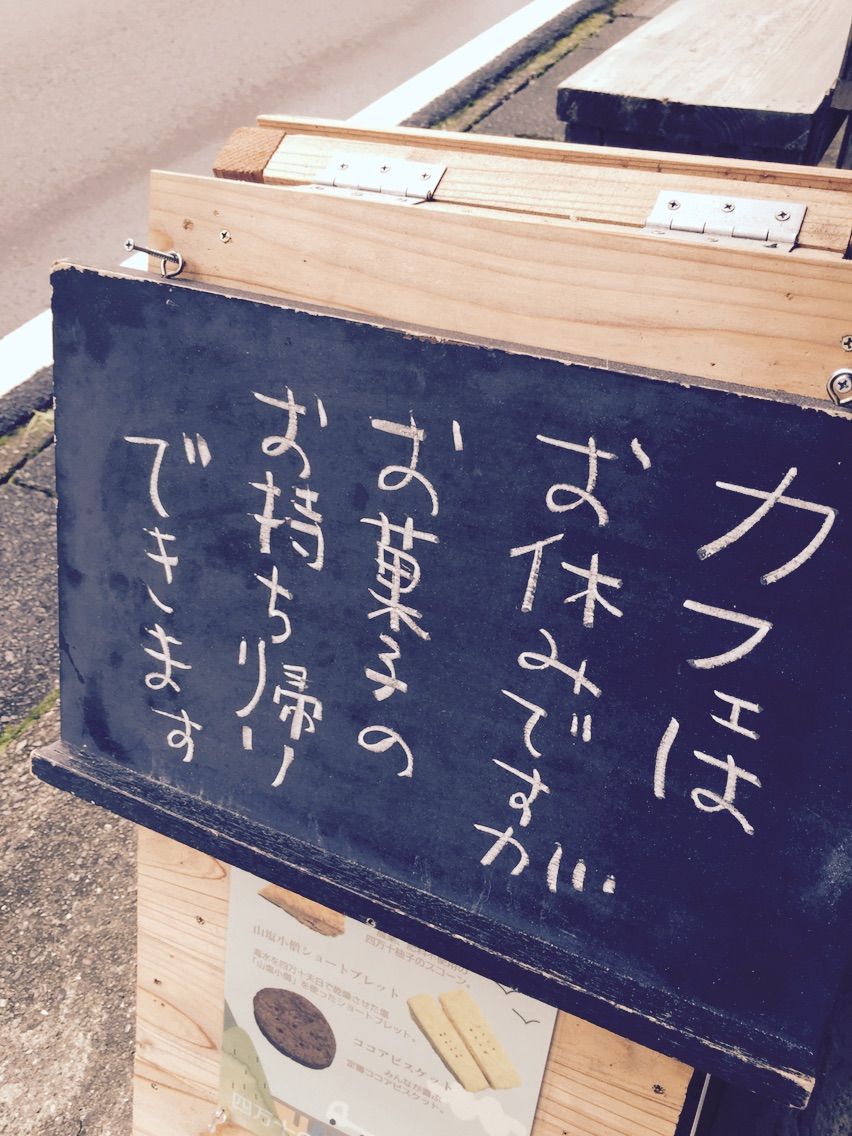 カフェは
お休みですが
お菓子の
お持ち帰り
できます
四万十柚子のスコーン。
山塩小僧ショートブレット
海水を四万十天日で乾燥させた塩
「山塩小僧」を使ったショートブレット。
ココアビスケット
みんなが喜ぶ
定番ココアビスケット。